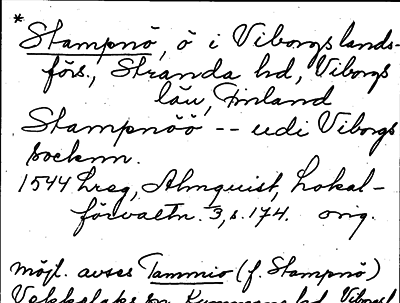 *
Stampnö, ö i Viborgs lands-
förs., Stranda hd, Viborgs
län, Finland
Stampnöö -- udi Viborgs
socknn.
1544 Lreg, Almquist, Lokal-
förvaltn. 3, s. 174. orig.
möjl. avses Tammio (f. Stampnö)
Vekkelaks sn Kymmene hd Viborgs l